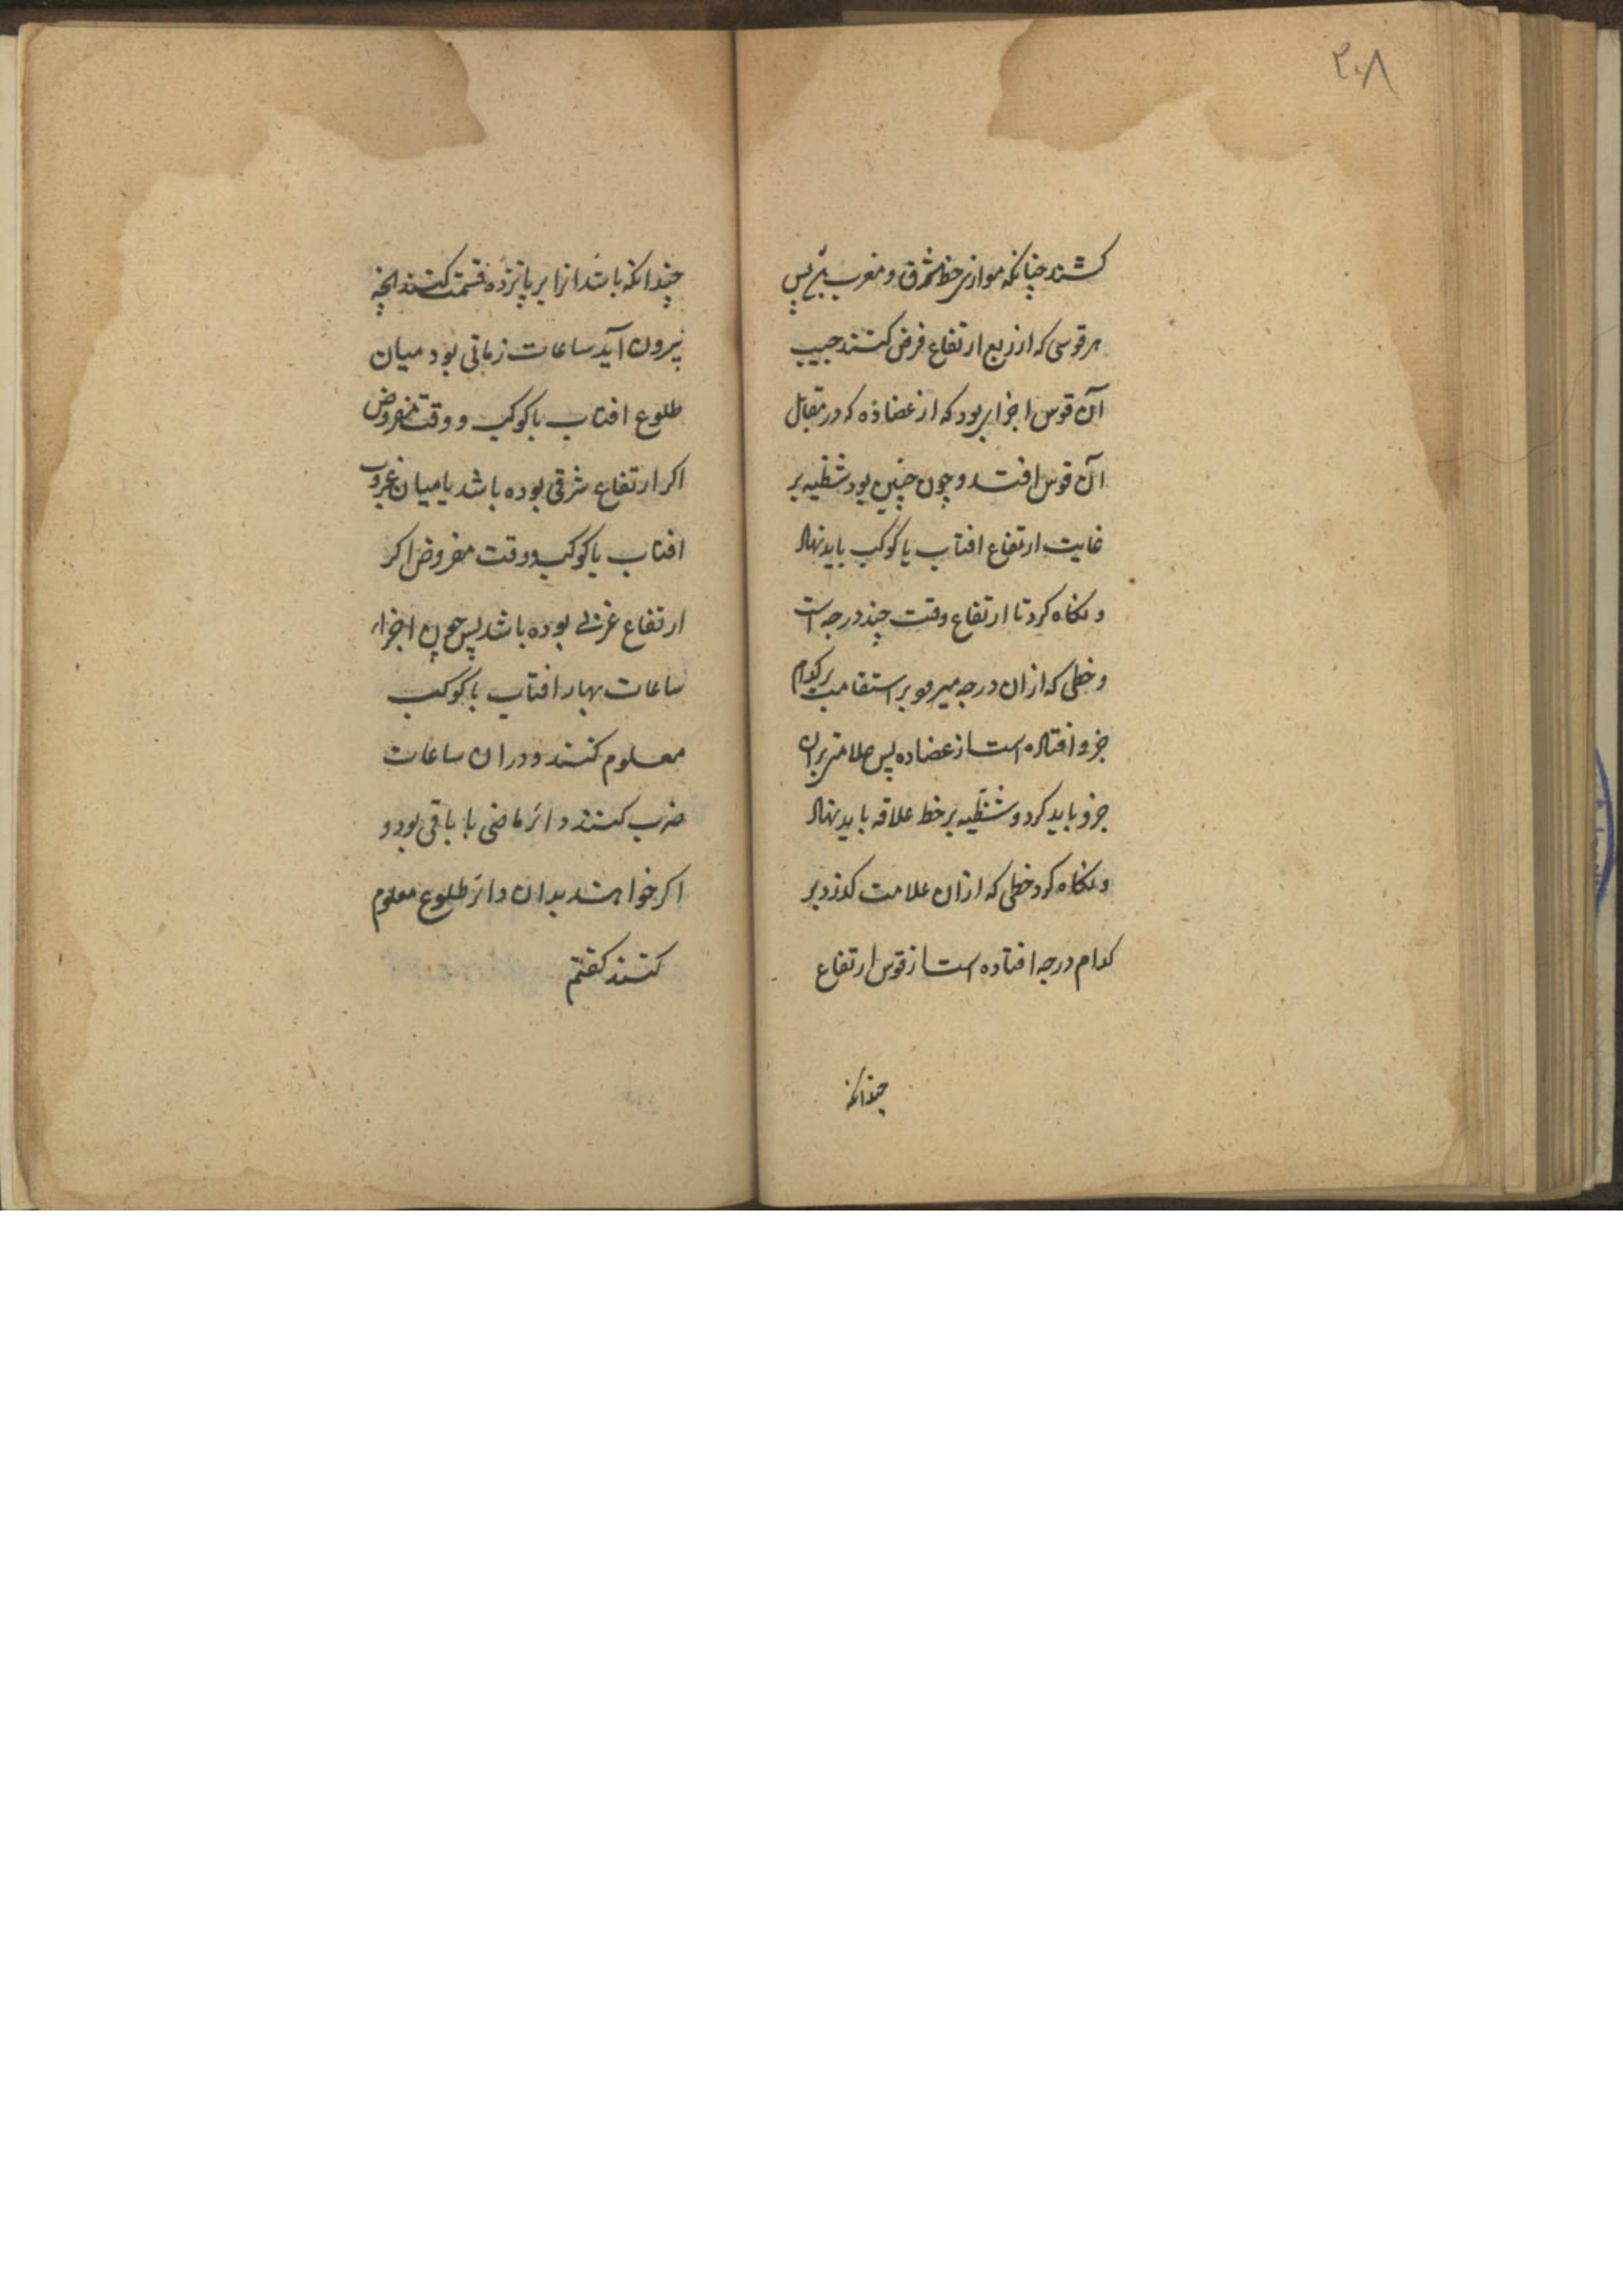 ۲۰۸
کشند چنانکه موازی خط مشرق و مغرب پس
هر قوسی که از ربع ارتفاع فرض کنند جیب
آن قوس اجزایی بود که از عضاده که در مقابل
آن قوس افتد و چون چنین بود شظیه بر
غایت ارتفاع افتاب یا کوکب باید نهاد
و نکاه کرد تا ارتفاع وقت چند درجه است
و خطی که از ان درجه میرود بر استقامت بر کدام
جزو افتاده است از عضاده پس علامتی بران
جزو باید کرد و شظیه بر خط علاقه باید نهاد
و نکاه کرد خطی که ازان علامت کذرد بر
کدام درجه افتاده است از قوس ارتفاع
چندانکه
چندانکه باشد انرا بر پانزده قسمت کنند انچه
بیرون آید ساعات زمانی بود میان
طلوع افتاب یا کوکب و وقت مفروض
اکر ارتفاع شرقی بوده باشد یا میان غروب
افتاب یا کوکب و وقت مفروض اکر
ارتفاع غربی بوده باشد پس چون اجزاء
ساعات نهار افتاب یا کوکب
معلوم کنند و در ان ساعات
ضرب کنند دائر ماضی یا باقی بود و
اکر خواهند بدان دائر طلوع معلوم
کنند کفتم